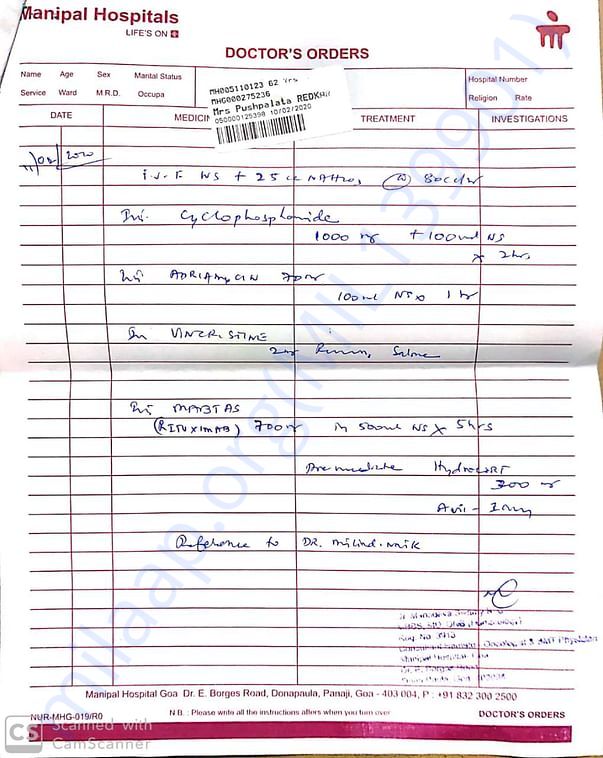 Manipal Hospitals
LIFE'S ON
DOCTOR'S ORDERS
Name Age Sex Marital Status
Service Ward M.R.D. Occupa
Hospital Number
Religion Rate
MH005110123 62 Yrs
MHG000275236
Mrs Pushpalata REDKAR
050000125390 10/02/2020
DATE MEDICIN TREATMENT INVESTIGATIONS
11/02/2020
i.v.F NS + 25 cc NAHCO3 @ 80cc/hr
Inj. Cyclophosphamide
1000 mg + 100ml NS
x 2hrs
Inj ADRIAMYCIN 70mg
100ml NS x 1 hr
Inj VINCRISTINE
2mg Saline
Inj MABTAS
(RITUXIMAB) 700mg in 500ml NS x 5hrs
Premedicate Hydrocort
Avil -
Reference to DR. Milind. Naik
Manipal Hospital Goa
Manipal Hospital Goa Dr. E. Borges Road, Donapaula, Panaji, Goa - 403 004, P : +91 832 300 2500
NUR-MHG-019/R0 N.B. : Please write all the instructions afters when you turn over DOCTOR'S ORDERS
CS Scanned with
CamScanner
milaap.org(MIL139901)